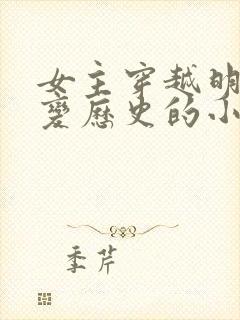 女主穿越明
變歷史的小
季芹